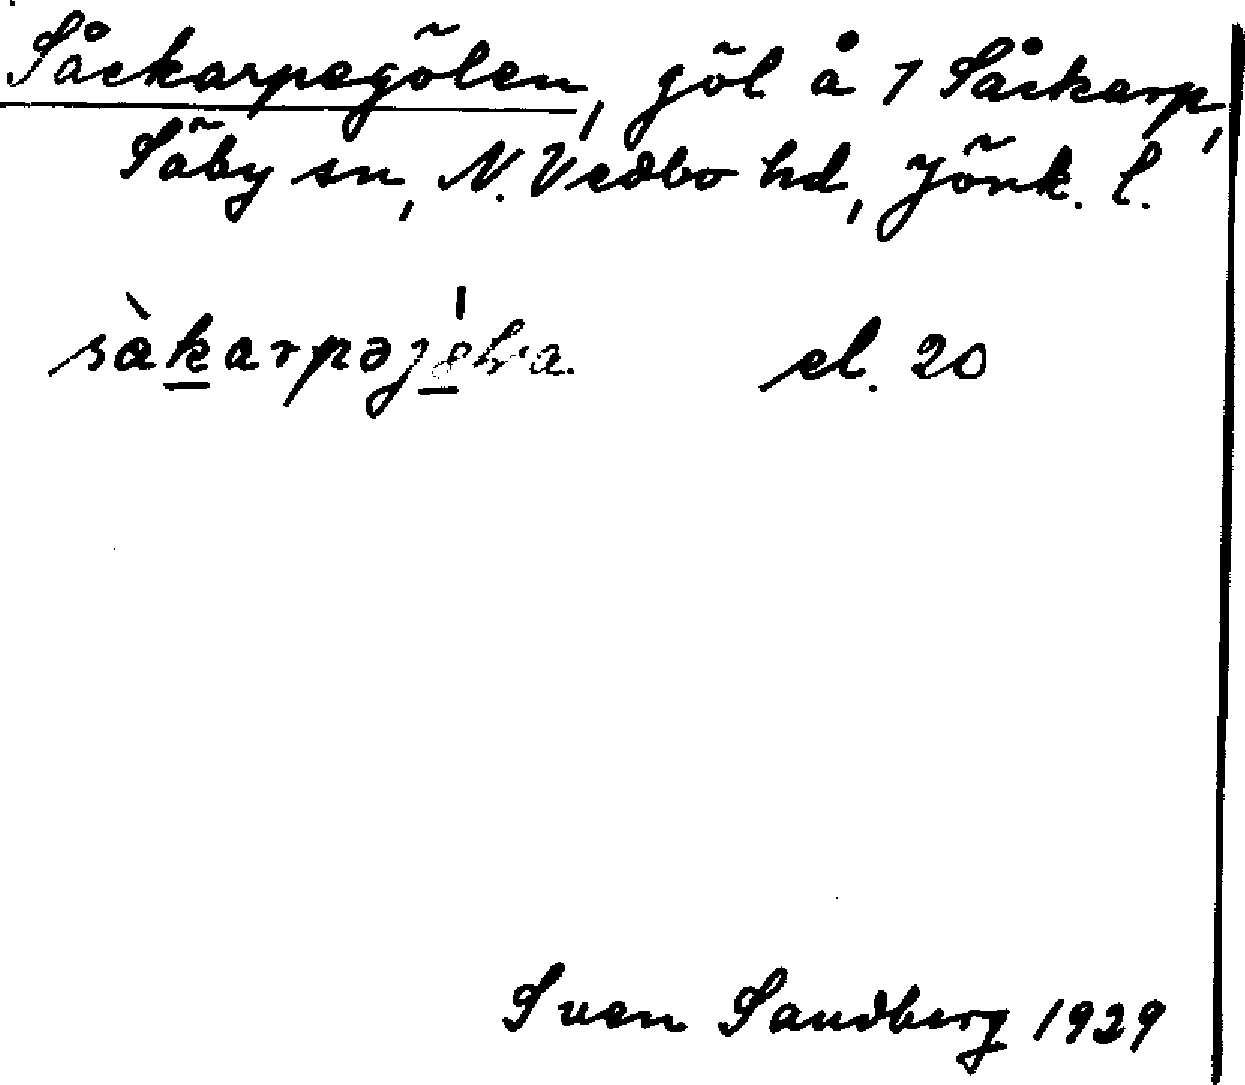 Såckarpegölen, göl å 1 Såckarp,
Säby sn, N. Vedbo hd, Jönk. l.
el. 20
Sven Sandberg 1929